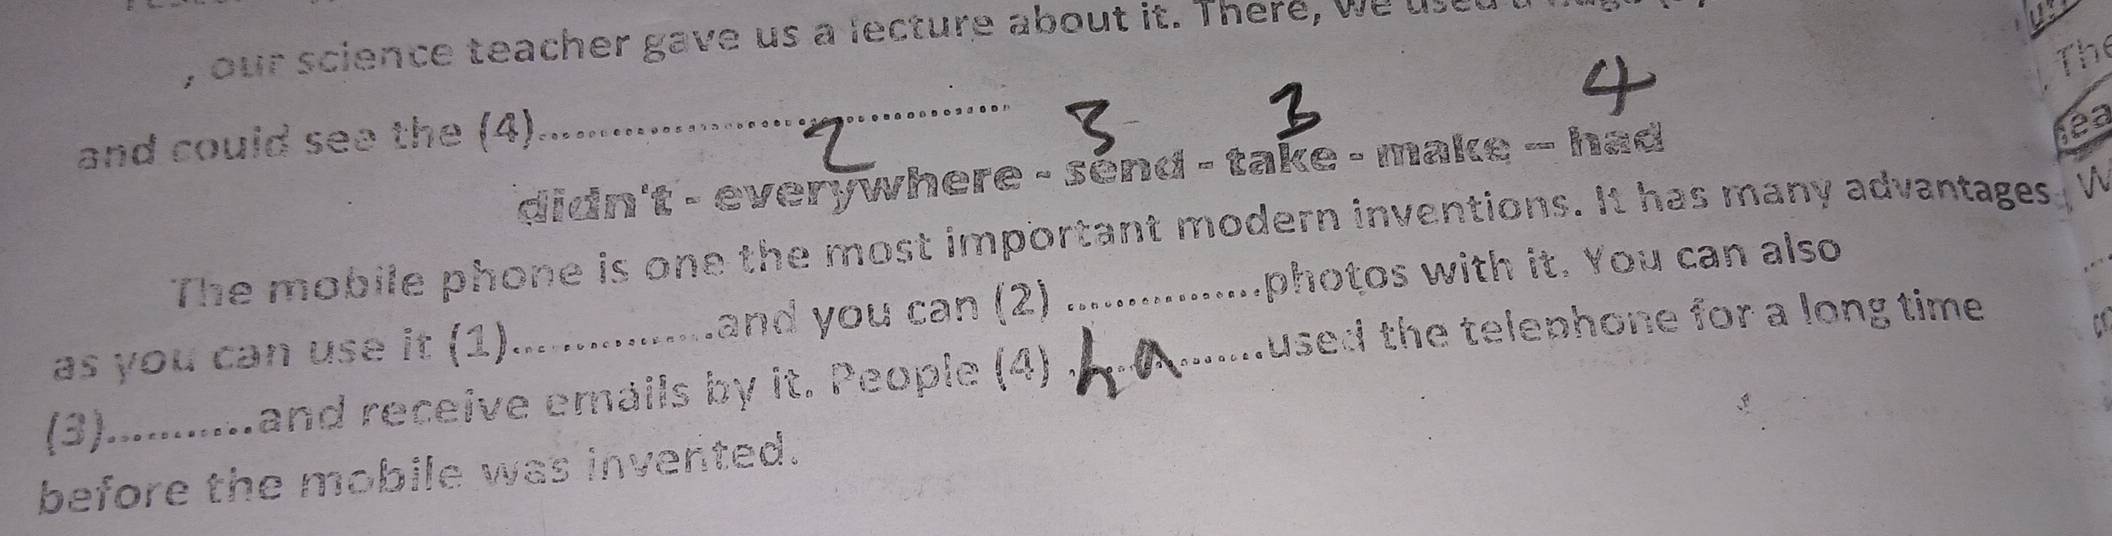 , our science teacher gave us a lecture about it. There, we used a
and could see the (4)..............................
2 3 3 4
didn't - everywhere - send - take - make – had
The mobile phone is one the most important modern inventions. It has many advantages
as you can use it (1)................and you can (2) ................photos with it. You can also
(3)............and receive emails by it. People (4) ha........used the telephone for a long time
before the mobile was invented.
The